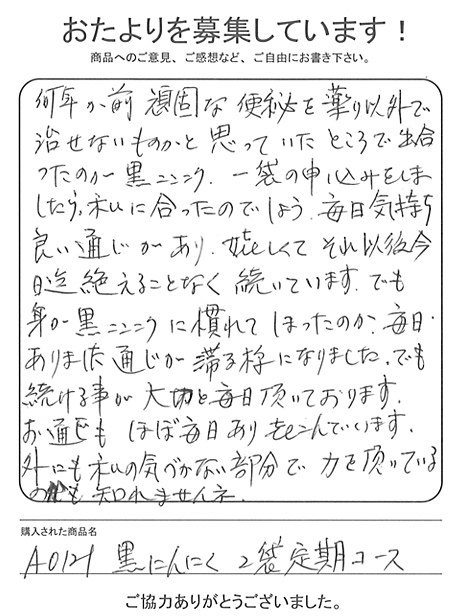 おたよりを募集しています！
商品へのご意見、ご感想など、ご自由にお書き下さい。
何年か前 頑固な 便秘を 薬り以外で
治せないものかと 思って いた ところで 出合
ったのが 黒ニンニク. 一袋の申込みをしま
したら, 私に 合ったのでしょう. 毎日 気持ち
良い 通じ があり. 嬉しくて それ以後 今
日迄 絶えることなく 続いています. でも
身が 黒ニンニクに 慣れて しまったのか. 毎日.
ありました 通じが 滞る様 になりました. でも
続ける事が 大切と 毎日 頂いております.
お通じも ほぼ毎日 あり 喜こんでいます.
外にも 私の気づかない 部分で 力を 頂いている
のかも 知れませんネ.
購入された商品名
A0121 黒にんにく 2袋定期コース
ご協力ありがとうございました。